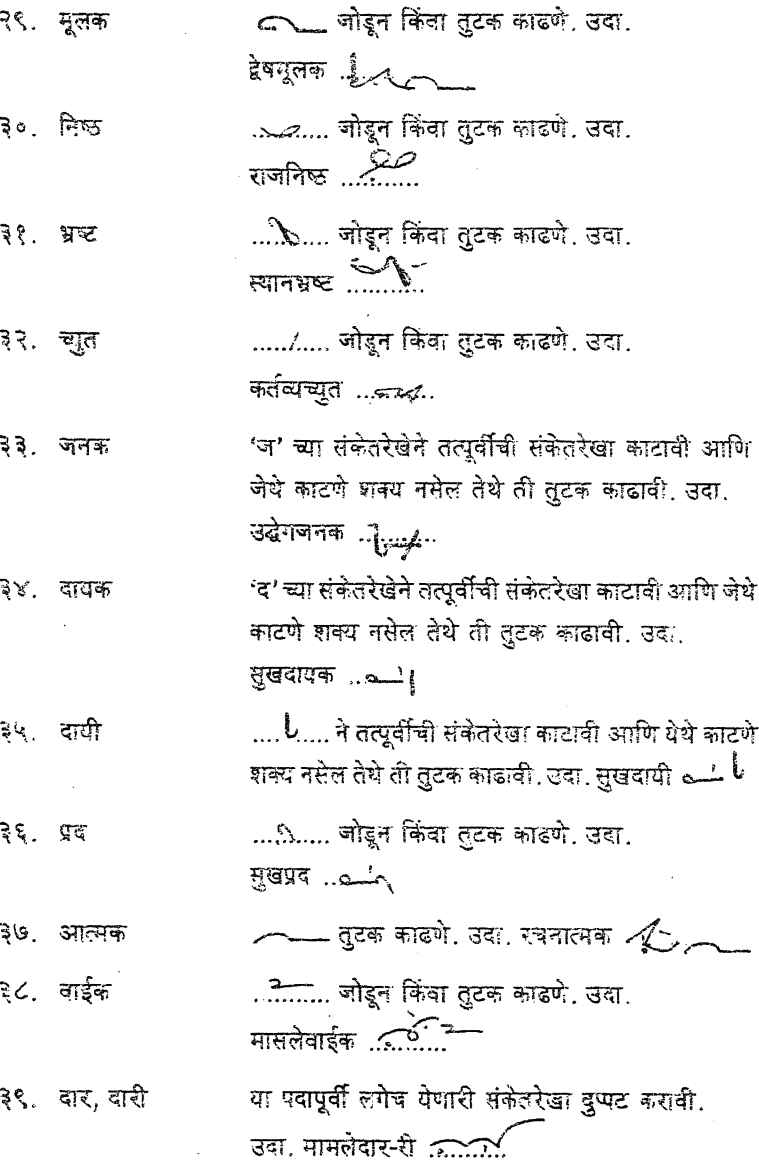 २९. मूलक जोडून किंवा तुटक काढणे. उदा.
द्वेषमूलक
३०. निष्ठ ......... जोडून किंवा तुटक काढणे. उदा.
राजनिष्ठ ...........
३१. भ्रष्ट ......... जोडून किंवा तुटक काढणे. उदा.
स्थानभ्रष्ट ...........
३२. च्युत ......... जोडून किंवा तुटक काढणे. उदा.
कर्तव्यच्युत ...........
३३. जनक ‘ज’ च्या संकेतरेखेने तत्पूर्वीची संकेतरेखा काटावी आणि
जेथे काटणे शक्य नसेल तेथे ती तुटक काढावी. उदा.
उद्वेगजनक ...........
३४. दायक ‘द’ च्या संकेतरेखेने तत्पूर्वीची संकेतरेखा काटावी आणि जेथे
काटणे शक्य नसेल तेथे ती तुटक काढावी. उदा.
सुखदायक ..
३५. दायी ......... ने तत्पूर्वीची संकेतरेखा काटावी आणि येथे काटणे
शक्य नसेल तेथे ती तुटक काढावी. उदा. सुखदायी
३६. प्रद ......... जोडून किंवा तुटक काढणे. उदा.
सुखप्रद ..
३७. आत्मक तुटक काढणे. उदा. रचनात्मक
३८. वाईक ........... जोडून किंवा तुटक काढणे. उदा.
मासलेवाईक ...........
३९. दार, दारी या पदापूर्वी लगेच येणारी संकेतरेखा दुप्पट करावी.
उदा. मामलेदार-री ...........